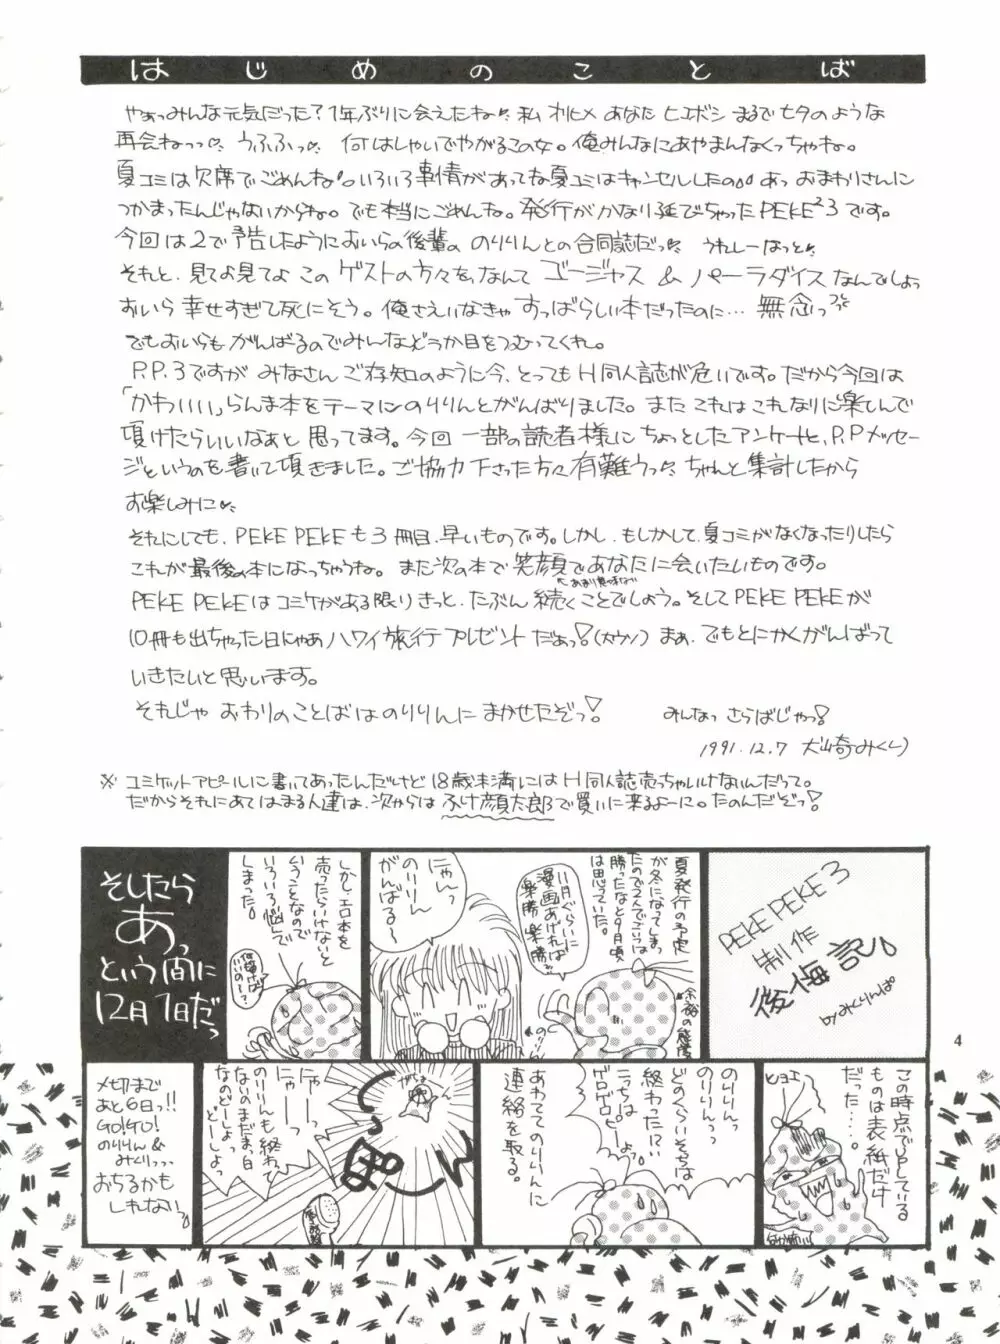 はじめのことば
やあっみんな元気だった?1年ぶりに会えたね 私 オリヒメ あなた ヒコボシ まるで七夕のような
再会ねっっ うふふっ 何はしゃいでやがるこの女。俺みんなにあやまんなくっちゃね。
夏コミは欠席でごめんね。いろいろ事情があってな夏コミはキャンセルしたの あっ おまわりさんに
つかまったんじゃないからね。でも本当にごめんね。発行がかなり延びちゃったPEKE²3です。
今回は2で予告したようにおいらの後輩の のりりんとの合同誌だっ うれしーはっと
それと、見てよ見てよ この ゲストの方々を、なんて ゴージャス & パーラダイス なんでしょっ
おいら 幸せすぎて死にそう。俺さえいなきゃ すっばらしい本だったのに… 無念っ
でもおいらも がんばるのでみんなどうか目をつむってくれ。
P.P.3ですが みなさん ご存知のように今、とっても H同人誌が危いです。だから今回は
「かわいい」らんま本をテーマにのりりんとがんばりました。また これは これなりに楽しんで
頂けたらいいなあと 思ってます。今回 一部の読者様に ちょっとしたアンケートと、P.Pメッセー
ジというのを書いて頂きました。ご協力下さった方々有難うっ ちゃんと集計したから
お楽しみに
それにしても、PEKE PEKEも3冊目、早いものです。しかし、もしかして、夏コミがなくなったりしたら
これが最後の本になっちゃうね。また次の本で笑顔であなたに会いたいものです。
あまり意味ない
PEKE PEKEはコミケがある限りきっと、たぶん 続くことでしょう。そしてPEKE PEKEが
10冊も出ちゃった日にゃあ ハワイ旅行プレゼント だぁっ!(大ウソ) まぁ、でもとにかくがんばって
いきたいと思います。
それじゃ おわりのことばはのりりんに まかせたぞっ! みんなっ さらばじゃっ!
1991.12.7 犬崎みくり
※ コミケットアピールに書いてあったんだけど 18歳未満には H同人誌売っちゃいけないんだって。
だからそれにあてはまる人達は、次からは ふけ顔太郎で買いに来るよーに。たのんだぞっ!
PEKE PEKE 3
制作
後悔記
by みくりんぱ
夏発行の予定
が冬になってしまっ
たので
勝ったなと9月頃
は思っていた。
11月ぐらいに
漫画あげれば
楽勝 楽勝
余裕の態度
にゃんっ
のりりん
がんばる〜
のりりん
しかし、エロ本を
売ったらいけないと
いうことなので
いろいろ悩んで
しまった。
何描けば
いいのー!
そしたら
あっ
という間に
12月1日だっ
この時点でUPしている
ものは表紙だけ
だった……。
ヒョエ
のりりんっ
のりりんっ
どのくらいそちらは
終わったにい
こっちは
ゲロゲロピーよっ
あわててのりりんに
連絡を取る。
にゃーっ
にゃーっ
のりりんも終わって
ないのまだまっ白
なのどーしょっ
どーしょっ
メ切まで
あと6日っ!!
GO!GO!
のりりん&
みくりっっ
おちるかも
しれない
4